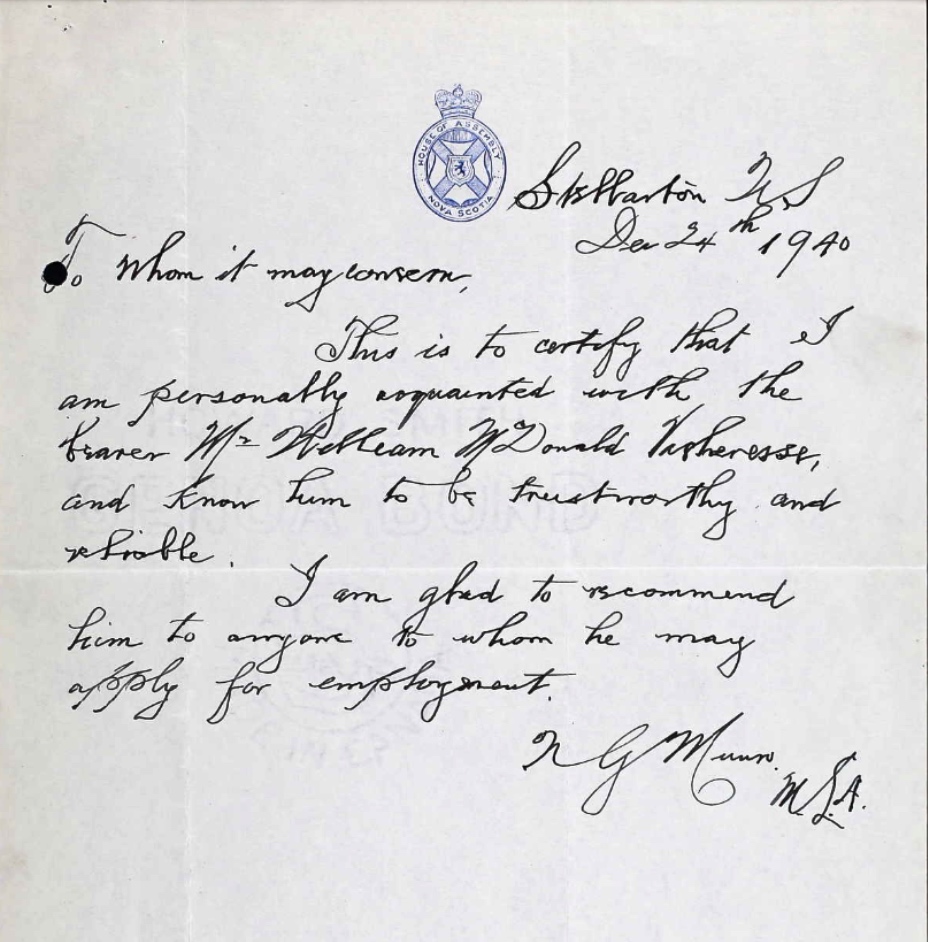 HOUSE OF ASSEMBLY
NOVA SCOTIA
Stellarton N S
Dec 24th 1940
To Whom it may concern,
This is to certify that I
am personally acquainted with the
bearer Mr William McDonald
and know him to be trustworthy and
reliable.
I am glad to recommend
him to anyone to whom he may
apply for employment.
G Munro.
M.L.A.